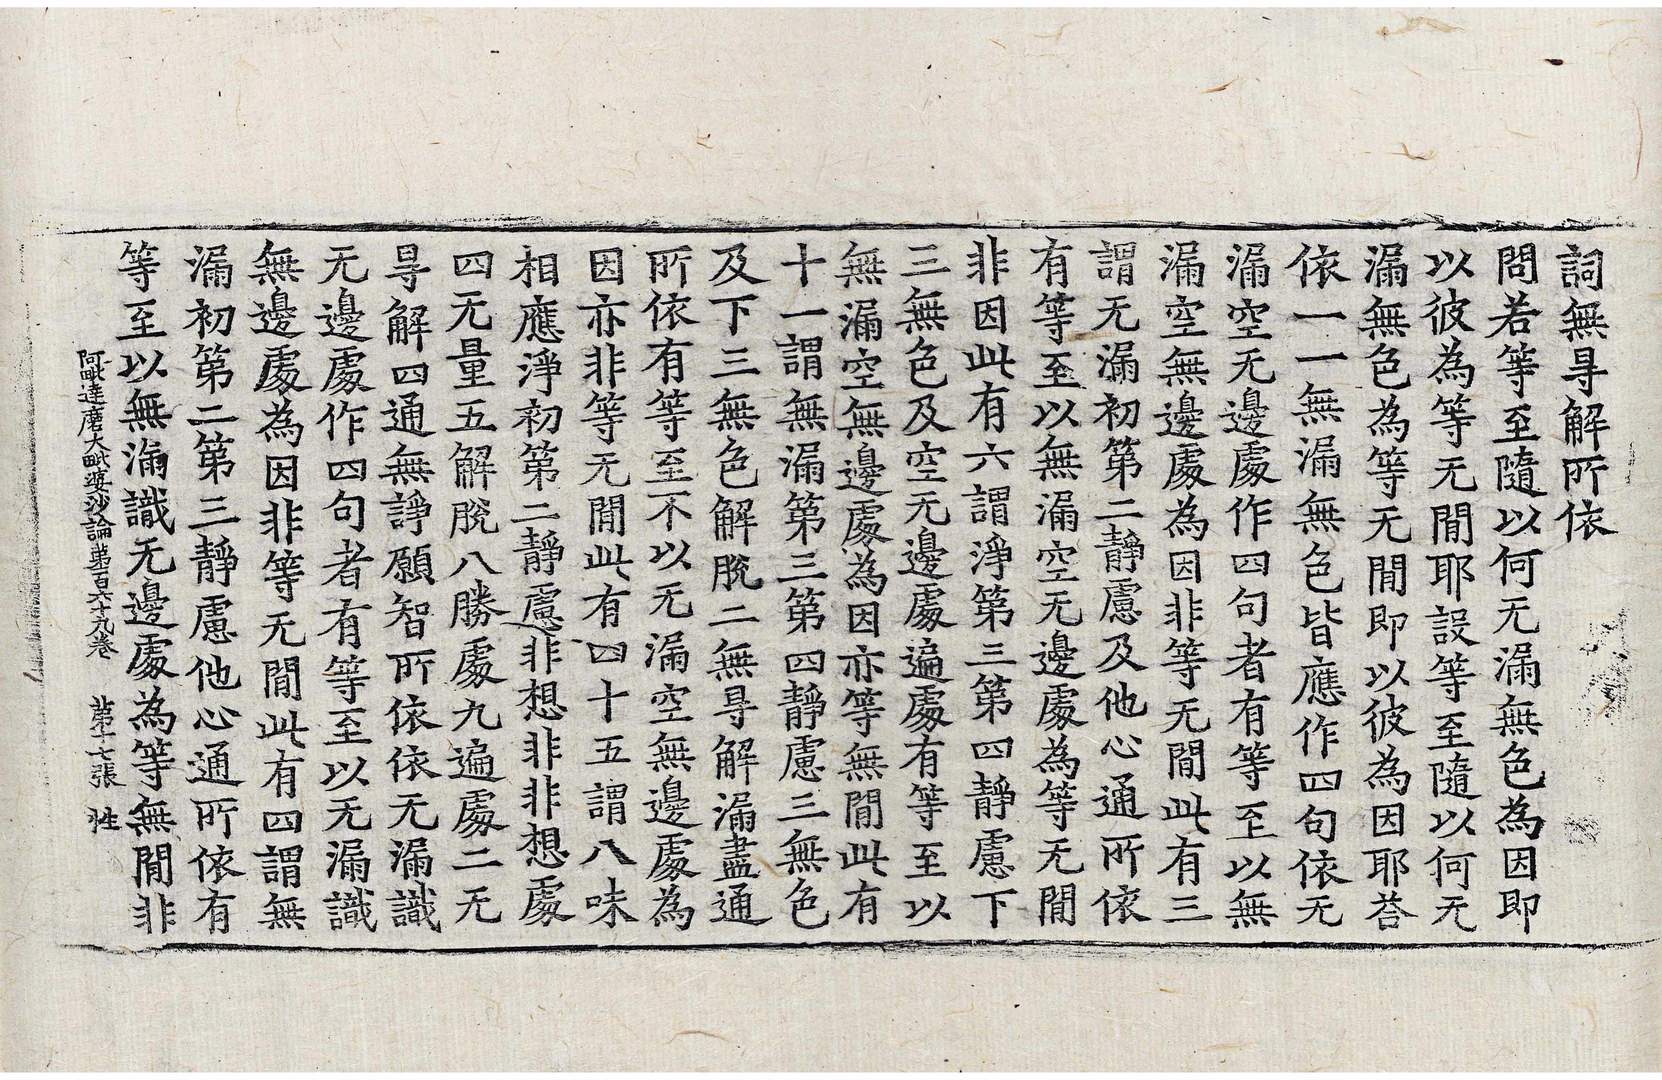 詞無㝵解所依
問若等至隨以何无漏無色為因即
以彼為等无間耶設等至隨以何无
漏無色為等无間即以彼為因耶荅
依一一無漏無色皆應作四句依无
漏空无邊處作四句者有等至以無
漏空無邊處為因非等无間此有三
謂无漏初第二靜慮及他心通所依
有等至以無漏空无邊處為等无間
非因此有六謂淨第三第四靜慮下
三無色及空无邊處遍處有等至以
無漏空無邊處為因亦等無間此有
十一謂無漏第三第四靜慮三無色
及下三無色解脫二無㝵解漏盡通
所依有等至不以无漏空無邊處為
因亦非等无間此有四十五謂八味
相應淨初第二靜慮非想非非想處
四无量五解脫八勝處九遍處二无
㝵解四通無諍願智所依依无漏識
无邊處作四句者有等至以无漏識
無邊處為因非等无間此有四謂無
漏初第二第三靜慮他心通所依有
等至以無漏識无邊處為等無間非
阿毗達磨大毗婆沙論苐一百六十九卷 苐十七張 性